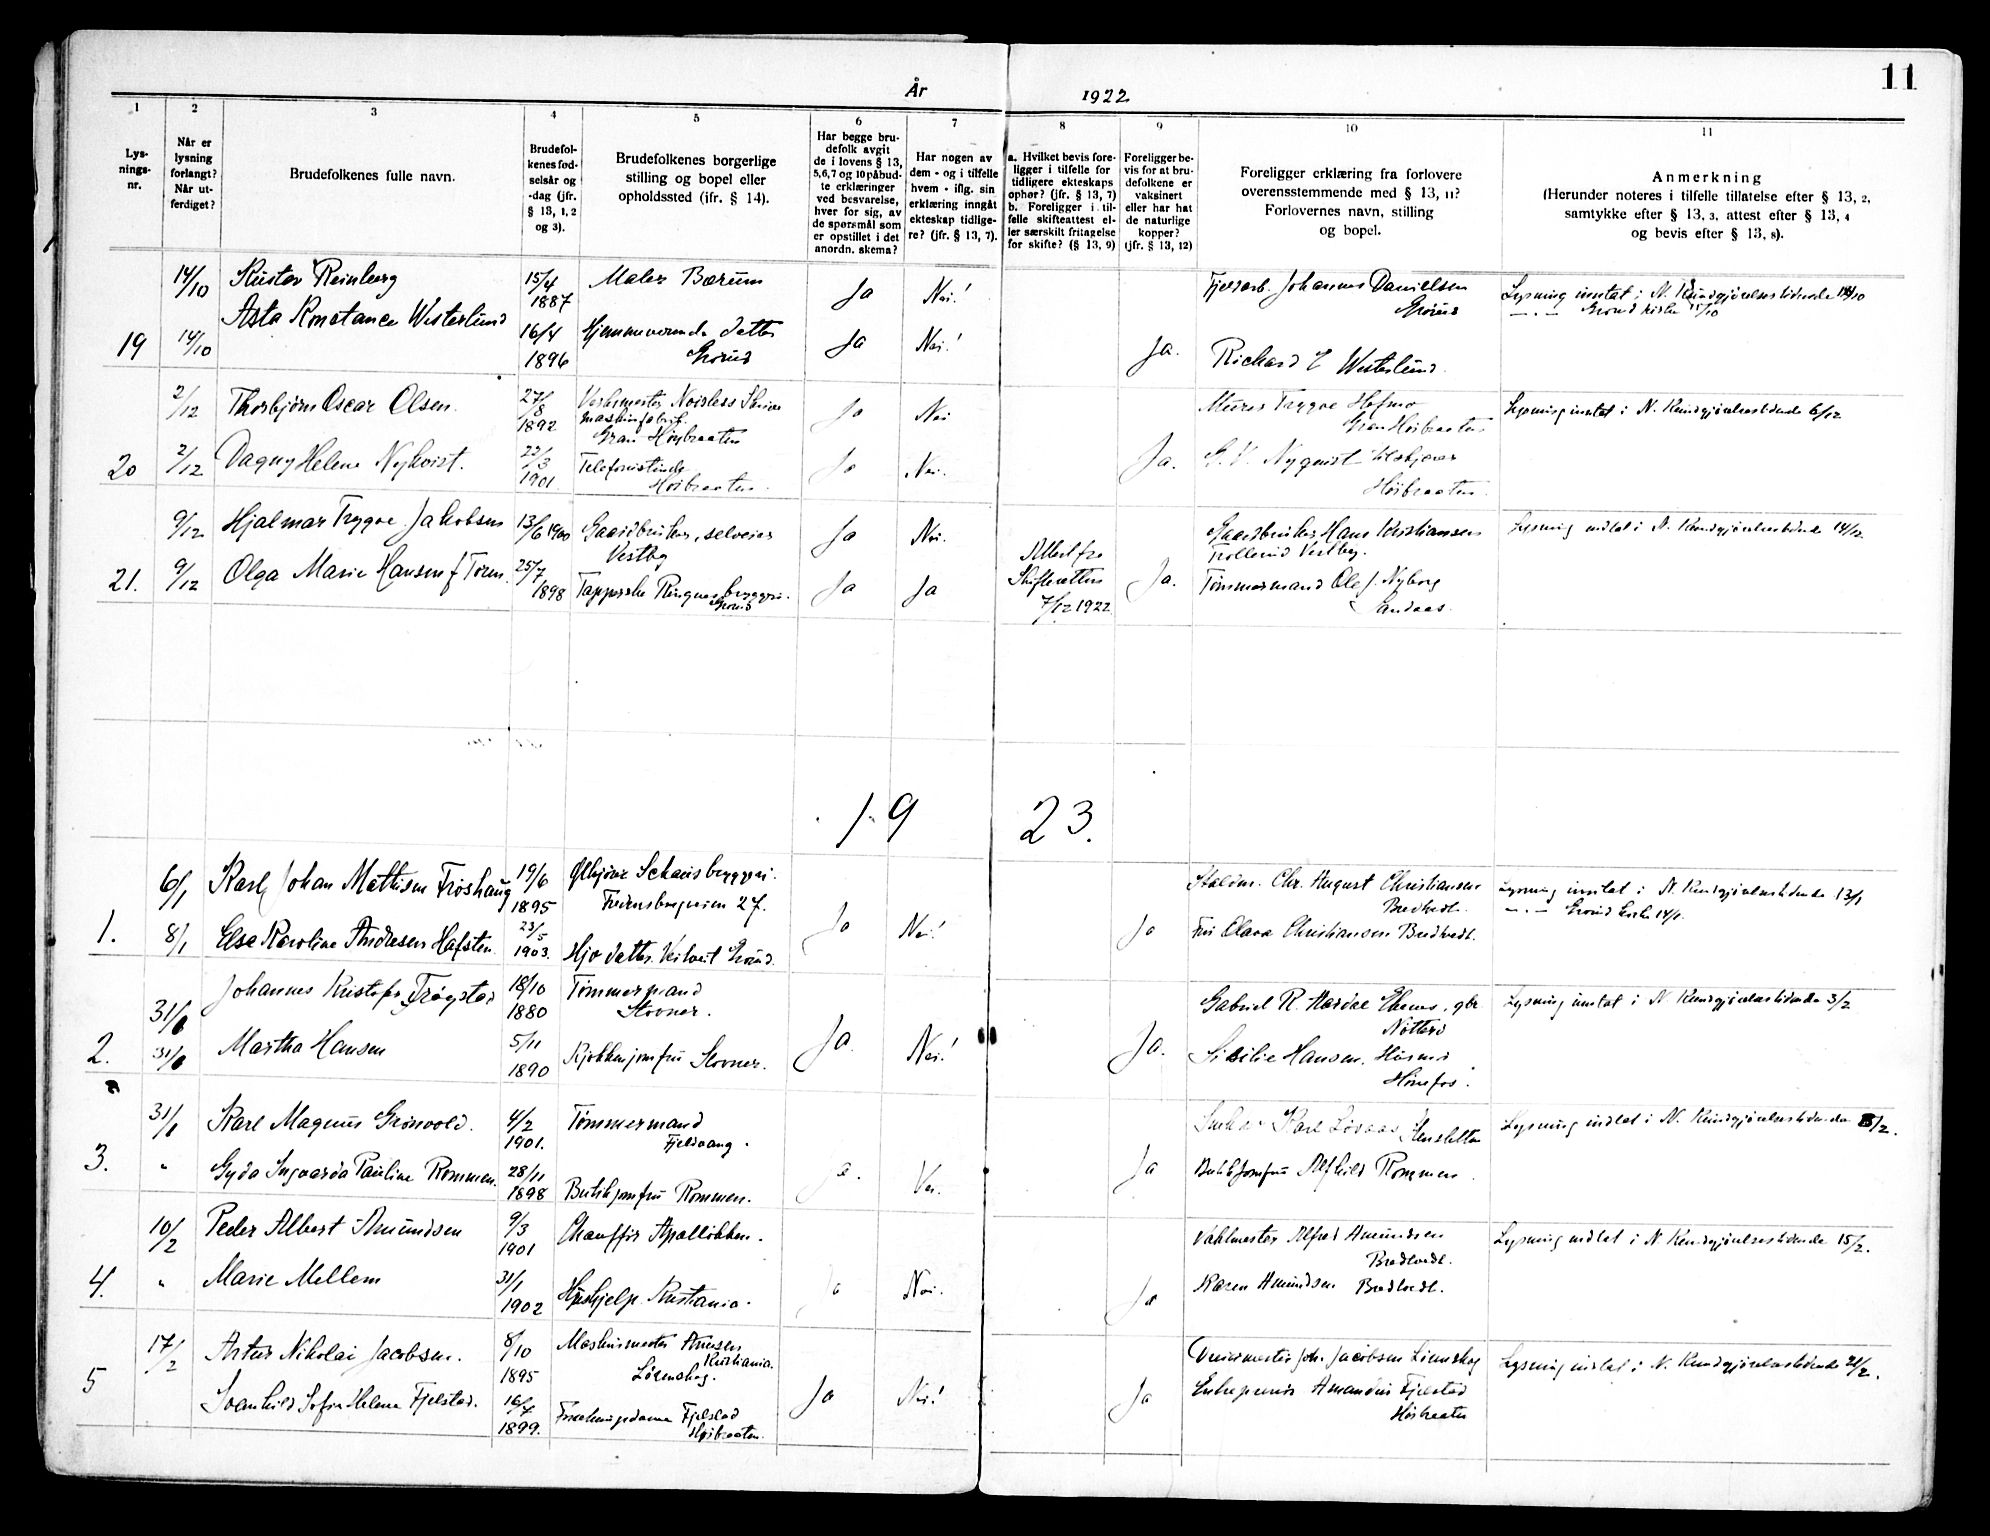 11
År 1922
1 2 3 4 5 6 7 8 9 10 11
Lys-
nings-
nr.
Når er
lysning
forlangt?
Når ut-
ferdiget?
Brudefolkenes fulle navn.
Brudefol-
kenes fød-
selsår og
-dag (jfr.
§ 13, 1, 2
og 3).
Brudefolkenes borgerlige
stilling og bopel eller
opholdssted (jfr. § 14).
Har begge bru-
defolk avgit
de i lovens § 13,
5,6,7 og 10 påbud-
te erklæringer
ved besvarelse,
hver for sig, av
de spørsmål som
er opstillet i det
anordn. skema?
Har nogen av
dem - og i tilfelle
hvem - iflg. sin
erklæring inngåt
ekteskap tidlige-
re? (jfr. § 13, 7).
a. Hvilket bevis fore-
ligger i tilfelle for
tidligere ekteskaps
ophør? (jfr. § 13, 7)
b. Foreligger i til-
felle skifteattest el-
ler særskilt fritagelse
for skifte? (§ 13, 9)
Foreligger be-
vis for at bru-
defolkene er
vaksinert
eller har hat
de naturlige
kopper?
(jfr. § 13, 12)
Foreligger erklæring fra forlovere
overensstemmende med § 13, 11?
Forlovernes navn, stilling
og bopel.
Anmerkning
(Herunder noteres i tilfelle tillatelse efter § 13, 2,
samtykke efter § 13, 3, attest efter § 13, 4
og bevis efter § 13, 8).
14/10 Kustav Reinberg 15/4 1887 Maler Bærum Ja Nei! Johannes Danielsen Grorud Lysning inntat i N. Kundgjørelsestidende 14/10
19 14/10 Asta Konstance Westerlund 16/4 1896 Hjemmeværende datter Grorud Ja Nei! Ja. Richard E Westerlund
2/12 Thorbjørn Oscar Olsen. 27/8 1892 Verksmester Noisless Skrive
maskinfabrik
Gran Høybraaten Ja Nei Murer Trygve Hofmo
Gran Høibraaten Lysning inntat i N. Kundgjørelsestidende 6/12
20 2/12 Dagny Helene Nykvist. 22/3 1901 Telefonistinde
Høibraaten. Ja Nei. Ja. Nyquist
Høibraaten.
9/12 Hjalmar Trygve Jakobsen 13/6 1900 Gaardbruker, selveier
Vestby Ja Nei. Gaardbruker Hans Kristiansen
Trollerud Vestby. Lysning indtat i N. Kundgjørelsestidende 14/12
21. 9/12 Olga Marie Hansen f 25/7 1898 Tapperske Ringnes bryggeri.
Grorud Ja Ja Attest fra
Skifteretten
7/12 1922 Ja. Tømmermand Ole J. Nyborg
1923.
6/1 Karl Johan Mathisen Frøshaug 19/6 1895 Ølkjører Schous bryggeri.
27. Staldm. Chr. August Christiansen
Bredtvedt. Lysning inntat i N. Kundgjørelsestidende 13/1
Grorud Kirke 14/1.
1. 8/1 Else Karoline Andresen Hafsten 23/5 1903. Hj. datter. Veitvet Grorud. Ja Nei! Ja Olava Christiansen Bredtvedt.
31/1 Johannes Kristofer Trøgstad 18/10 1880 Tømmermand
Stovner. Gabriel R.
Nøtterø Lysning inntat i N. Kundgjørelsestidende 3/2
2. 31/1 Martha Hansen 5/11 1890 Kjøkkenjomfru Stovner. Ja. Nei! Ja. Hansen.
Hønefos.
31/1 Karl Magnus Grønvold. 4/2 1901. Tømmermand
Fjeldvang. Karl Lysning indtat i N. Kundgjørelsestidende 8/2.
3. " Gyda Ingvarda Pauline Rommen. 28/11 1898 Butikjomfru Rommen. Ja. Nei. Ja Butikjomfru Alfhild Rommen.
10/2 Peder Albert Amundsen 9/3 1901 Chauffør Apalløkken. Alfred Amundsen
Bredtvedt. Lysning indtat i N Kundgjørelsestidende 15/2.
4. " Marie Mellem 31/1 1902 Hushjelp Kristiania. Ja Nei. Ja Karen Amundsen Bredtvedt.
17/2 Artur Nikolai Jacobsen. 8/10 1895 Maskinmester
Kristiania.
Lørenskog. Joh. Jacobsen Lørenskog Lysning inntat i N. Kundgjørelsestidende 21/2.
5 Svanhild Sofie Helene Fjelstad. 16/7 1899. Fjelstad
Høibraaten. Ja Nei! Ja Entreprenør Amandus Fjelstad
Høibraaten